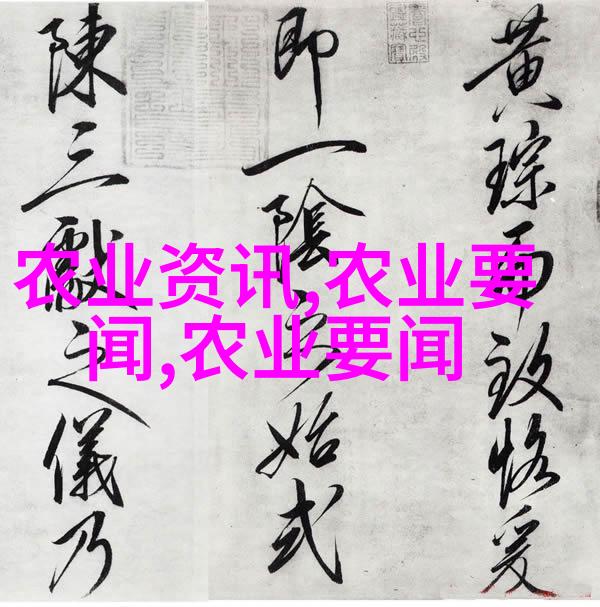 农业资讯,农业要
闻,农业要闻
黄琮而致恪爰
即一陰始式
陳三獻之儀乃